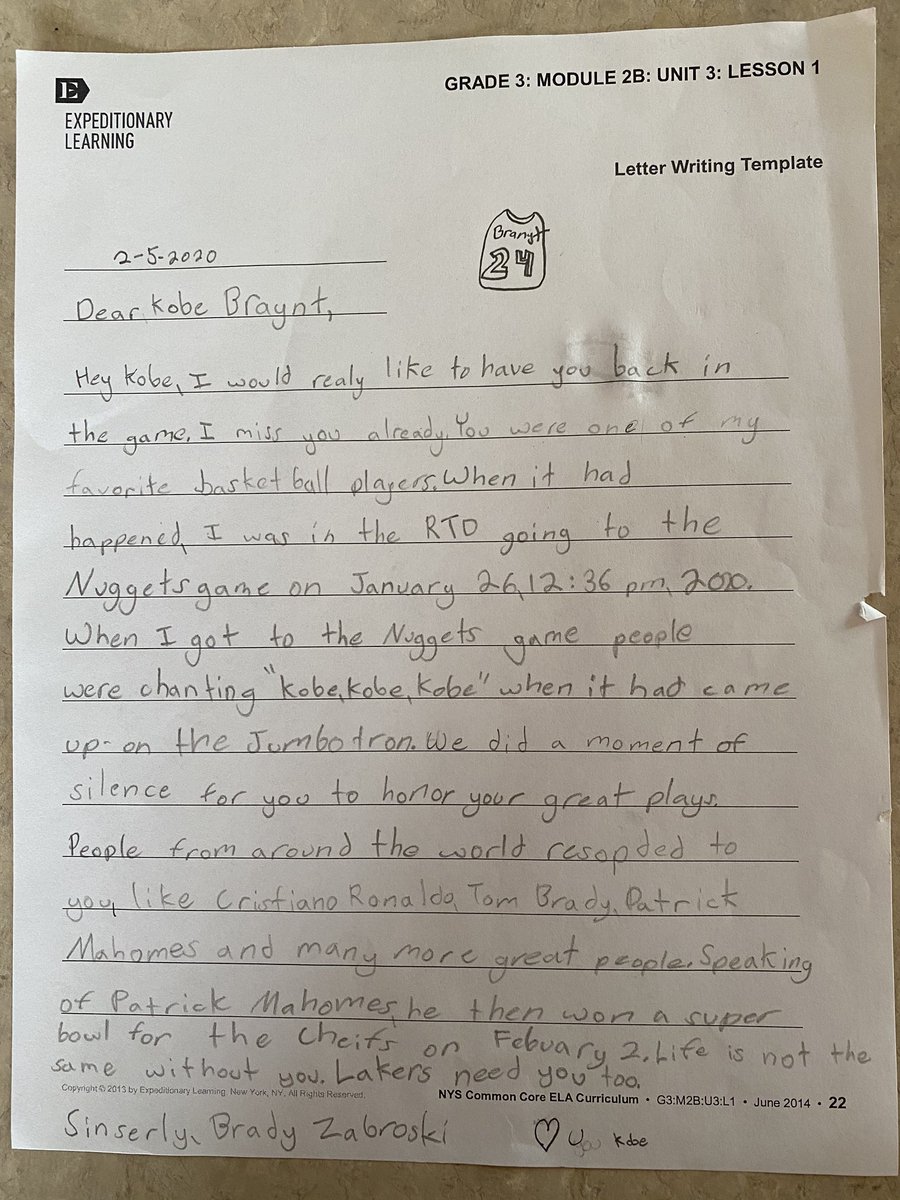 E
EXPEDITIONARY
LEARNING
GRADE 3: MODULE 2B: UNIT 3: LESSON 1
Letter Writing Template
Branyt
24
2-5-2020
Dear Kobe Braynt,
Hey Kobe, I would realy like to have you back in
the game. I miss you already. You were one of my
favorite basketball players. When it had
happened, I was in the RTD going to the
Nuggets game on January 26, 12:36 pm, 2020.
When I got to the Nuggets game people
were chanting "kobe, kobe, kobe" when it had came
up on the Jumbotron. We did a moment of
silence for you to honor your great plays.
People from around the world resopded to
you, like Cristiano Ronaldo, Tom Brady, Patrick
Mahomes and many more great people. Speaking
of Patrick Mahomes, he then won a super
bowl for the Cheifs on Febuary 2. Life is not the
same without you. Lakers need you too.
Copyright © 2013 by Expeditionary Learning, New York, NY. All Rights Reserved.
NYS Common Core ELA Curriculum • G3:M2B:U3:L1 • June 2014 • 22
Sinserly, Brady Zabroski
♡ you Kobe